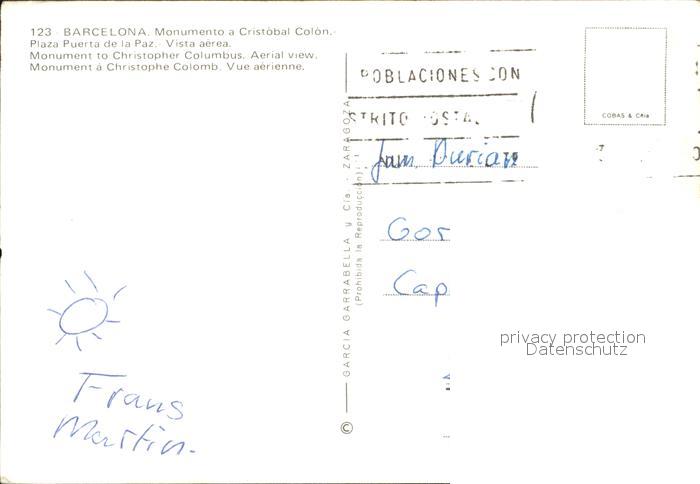 123 - BARCELONA. Monumento a Cristóbal Colón.-
Plaza Puerta de la Paz.- Vista aérea.
Monument to Christopher Columbus. Aerial view.
Monument á Christophe Colomb. Vue aérienne.
POBLACIONES CON
STRITO POSTAL
COBAS & Cía
Fam.
Gor
Cap
GARCIA GARRABELLA y Cía. - ZARAGOZA
(Prohibida la Reproducción)
©
privacy protection
Datenschutz
Frans
Martin.